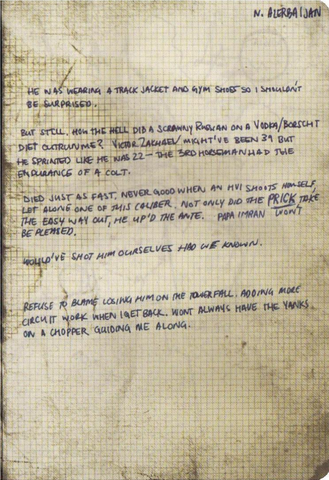 N. AZERBAIJAN
HE WAS WEARING A TRACK JACKET AND GYM SHOES SO I SHOULDN'T
BE SURPRISED.
BUT STILL. HOW THE HELL DID A SCRAWNY RUSSIAN ON A VODKA/BORSCHT
DIET OUTRUN ME? VICTOR ZAKHAEV MIGHT'VE BEEN 39 BUT
HE SPRINTED LIKE HE WAS 22 – THE 3RD HORSEMAN HAD THE
ENDURANCE OF A COLT.
DIED JUST AS FAST. NEVER GOOD WHEN AN HVI SHOOTS HIMSELF,
LET ALONE ONE OF THIS CALIBER. NOT ONLY DID THE PRICK TAKE
THE EASY WAY OUT, HE UP'D THE ANTE. PAPA IMRAN WON'T
BE PLEASED.
WOULD'VE SHOT HIM OURSELVES HAD WE KNOWN.
REFUSE TO BLAME LOSING HIM ON THE TOWER FALL. ADDING MORE
CIRCUIT WORK WHEN I GET BACK. WONT ALWAYS HAVE THE YANKS
ON A CHOPPER GUIDING ME ALONG.